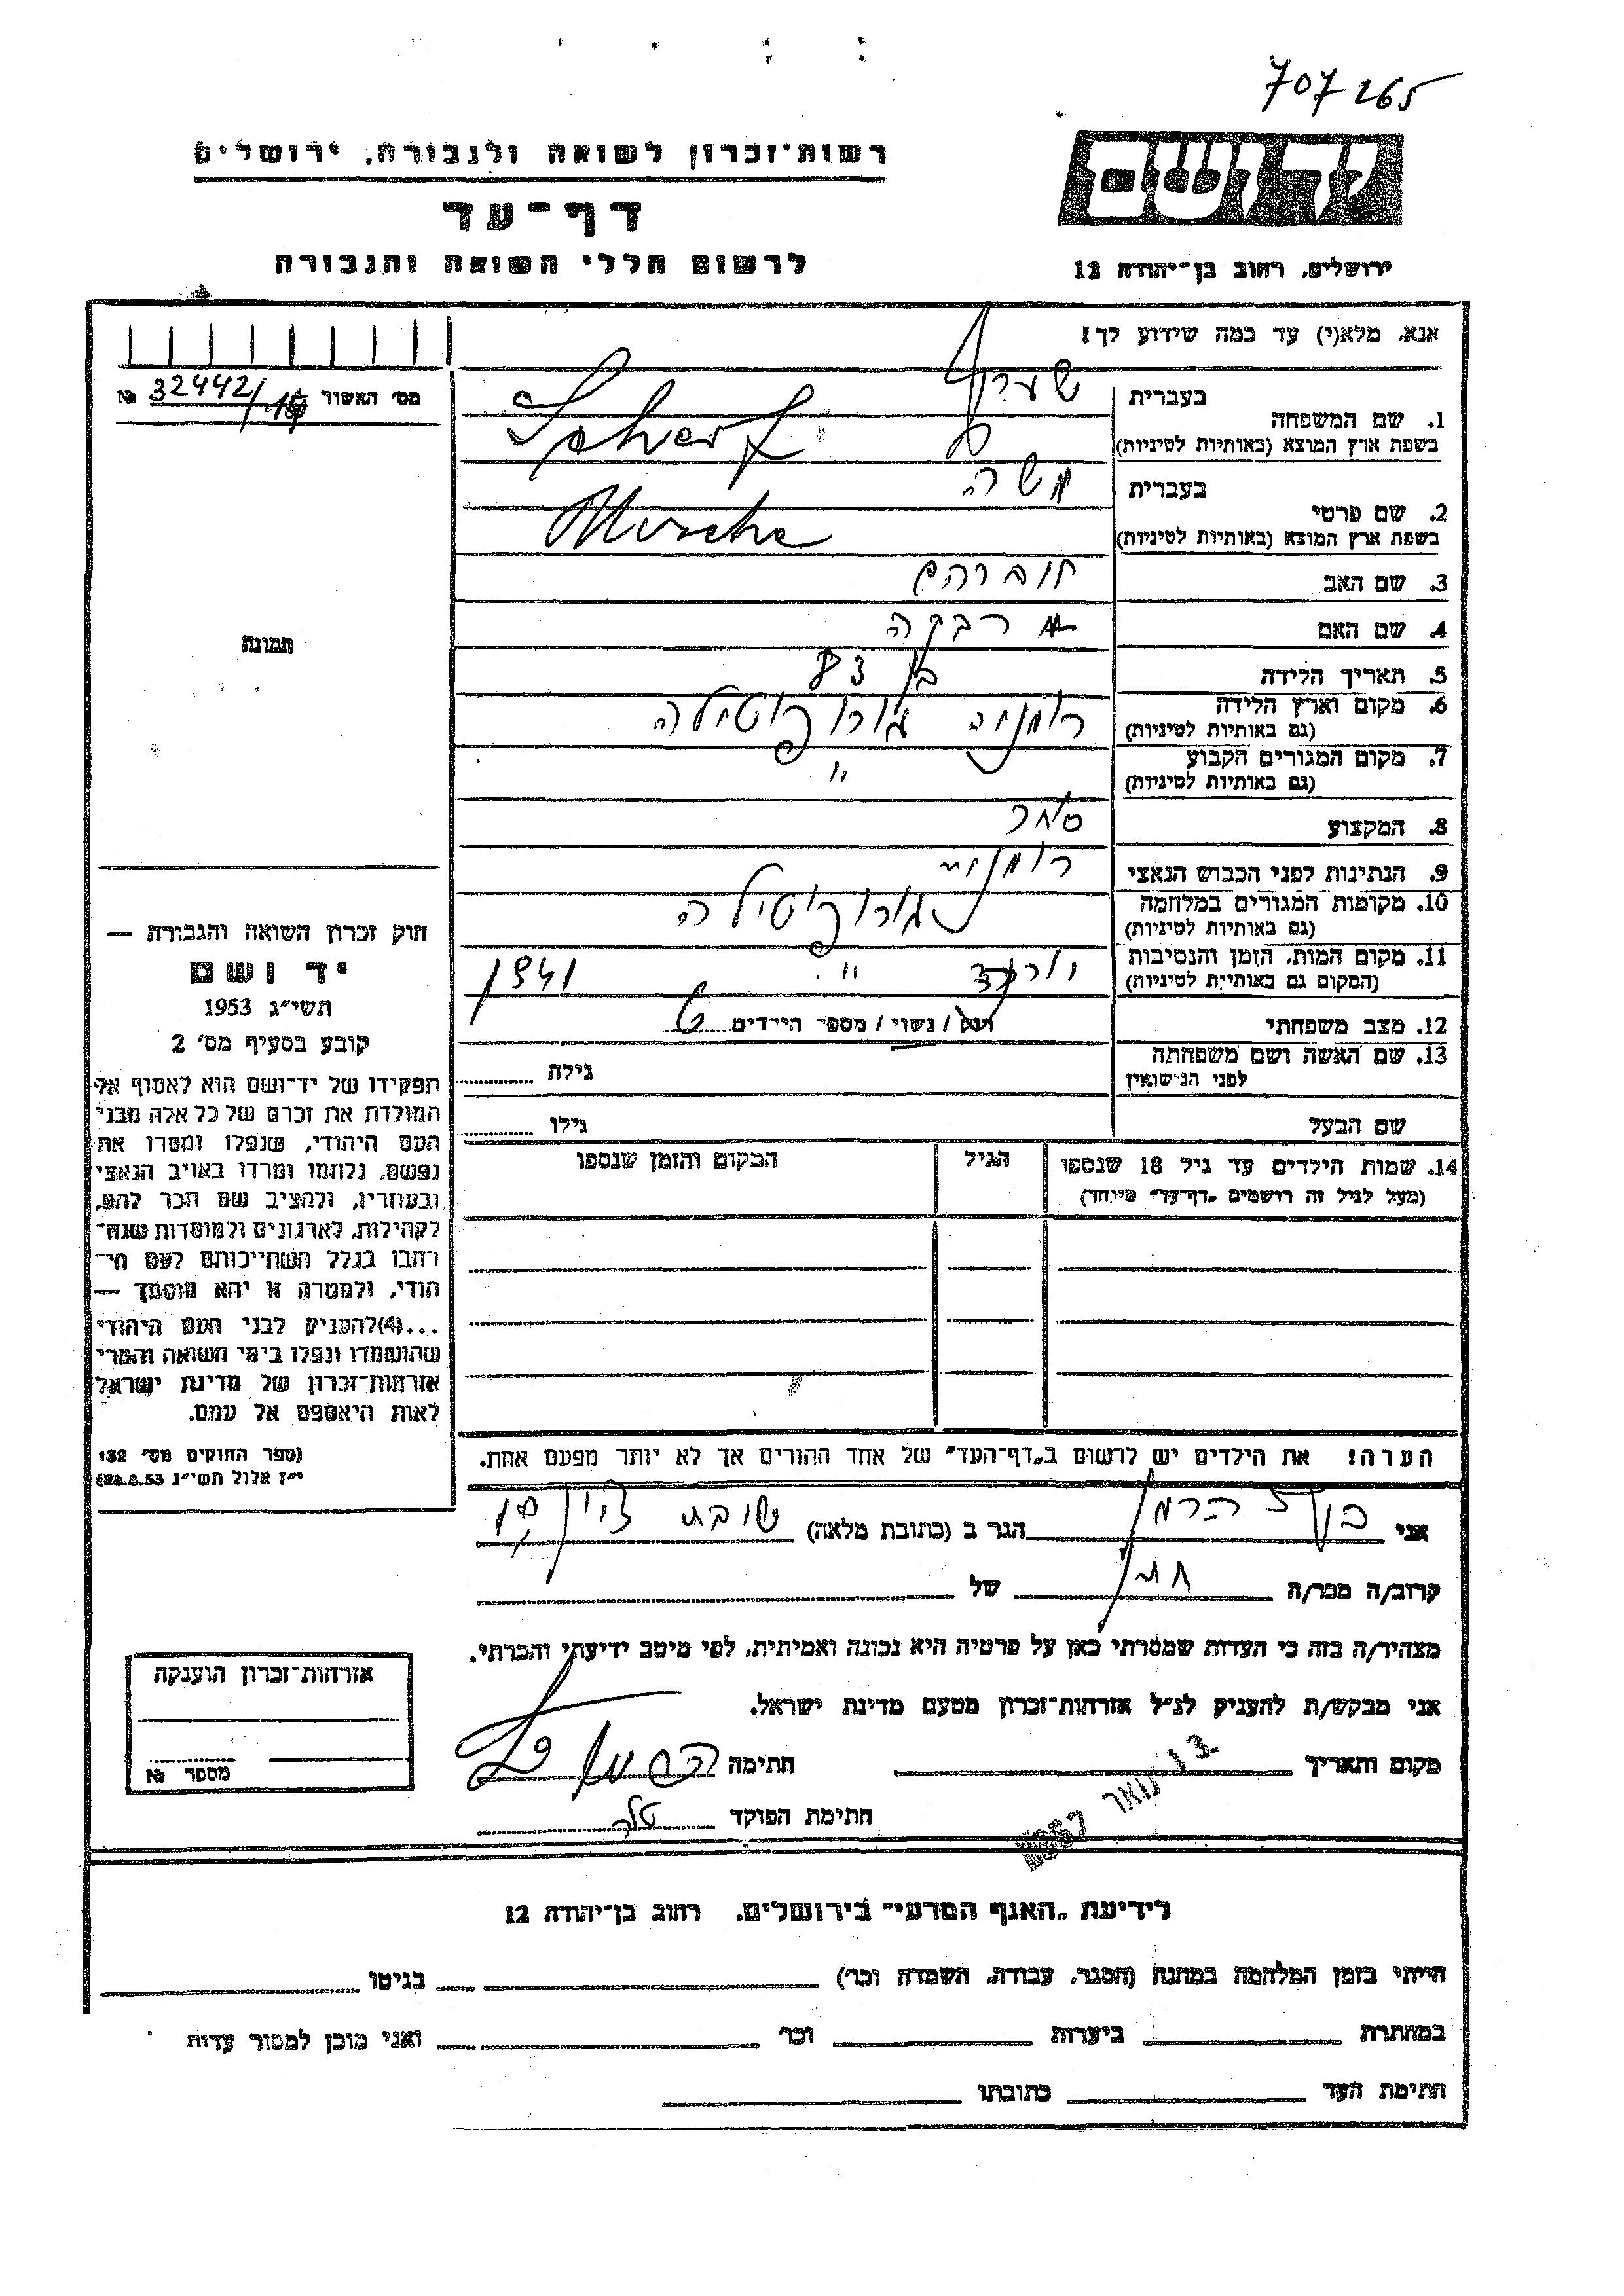 707265
רשות־זכרון לשואה ולגבורה, ירושלים
יד ושם
דף־עד
לרשום חללי השואה והגבורה
ירושלים, רחוב בן־יהודה 12
אנא, מלא(י) עד כמה שידוע לך!
מס׳ האשור 32442/ №
1. שם המשפחה
בעברית שערף
בשפת ארץ המוצא (באותיות לטיניות) Scherf
2. שם פרטי
בעברית משה
בשפת ארץ המוצא (באותיות לטיניות) Mosche
3. שם האב
4. שם האם רבקה
5. תאריך הלידה בן
6. מקום וארץ הלידה רומניה
(גם באותיות לטיניות)
7. מקום המגורים הקבוע "
(גם באותיות לטיניות)
8. המקצוע סוחר
9. הנתינות לפני הכבוש הנאצי רומנית
10. מקומות המגורים במלחמה
(גם באותיות לטיניות)
11. מקום המות, הזמן והנסיבות " 1941
(המקום גם באותיות לטיניות)
12. מצב משפחתי רוק / נשוי / מספר הילדים
13. שם האשה ושם משפחתה גילה
לפני הנישואין
שם הבעל גילו
14. שמות הילדים עד גיל 18 שנספו הגיל המקום והזמן שנספו
(מעל לגיל זה רושמים „דף־עד" מיוחד)
הערה! את הילדים יש לרשום ב„דף־העד" של אחד ההורים אך לא יותר מפעם אחת.
תמונה
חוק זכרון השואה והגבורה —
יד ושם
תשי״ג 1953
קובע בסעיף מס׳ 2
תפקידו של יד־ושם הוא לאסוף אל
המולדת את זכרם של כל אלה מבני
העם היהודי, שנפלו ומסרו את
נפשם, נלחמו ומרדו באויב הנאצי
ובעוזריו, ולהציב שם וזכר להם,
לקהילות, לארגונים ולמוסדות שנח־
רבו בגלל השתייכותם לעם הי־
הודי, ולמטרה זו יהא מוסמך —
...(4)להעניק לבני העם היהודי
שהושמדו ונפלו בימי השואה והמרי
אזרחות־זכרון של מדינת ישראל
לאות היאספם אל עמם.
(ספר החוקים מס׳ 132
י״ז אלול תשי״ג 28.8.53)
אני הרמן הגר ב (כתובת מלאה)
קרוב/ה מכר/ה חתן של
מצהיר/ה בזה כי העדות שמסרתי כאן על פרטיה היא נכונה ואמיתית, לפי מיטב ידיעתי והכרתי.
אני מבקש/ת להעניק לנ״ל אזרחות־זכרון מטעם מדינת ישראל.
מקום ותאריך 13 ינואר 1957 חתימה
חתימת הפוקד
אזרחות־זכרון הוענקה
מספר №
לידיעת „האגף המדעי" בירושלים, רחוב בן־יהודה 12
הייתי בזמן המלחמה במחנה (הסגר, עבודה, השמדה וכו׳) בגיטו
במחתרת ביערות וכו׳ ואני מוכן למסור עדות
חתימת העד כתובתו